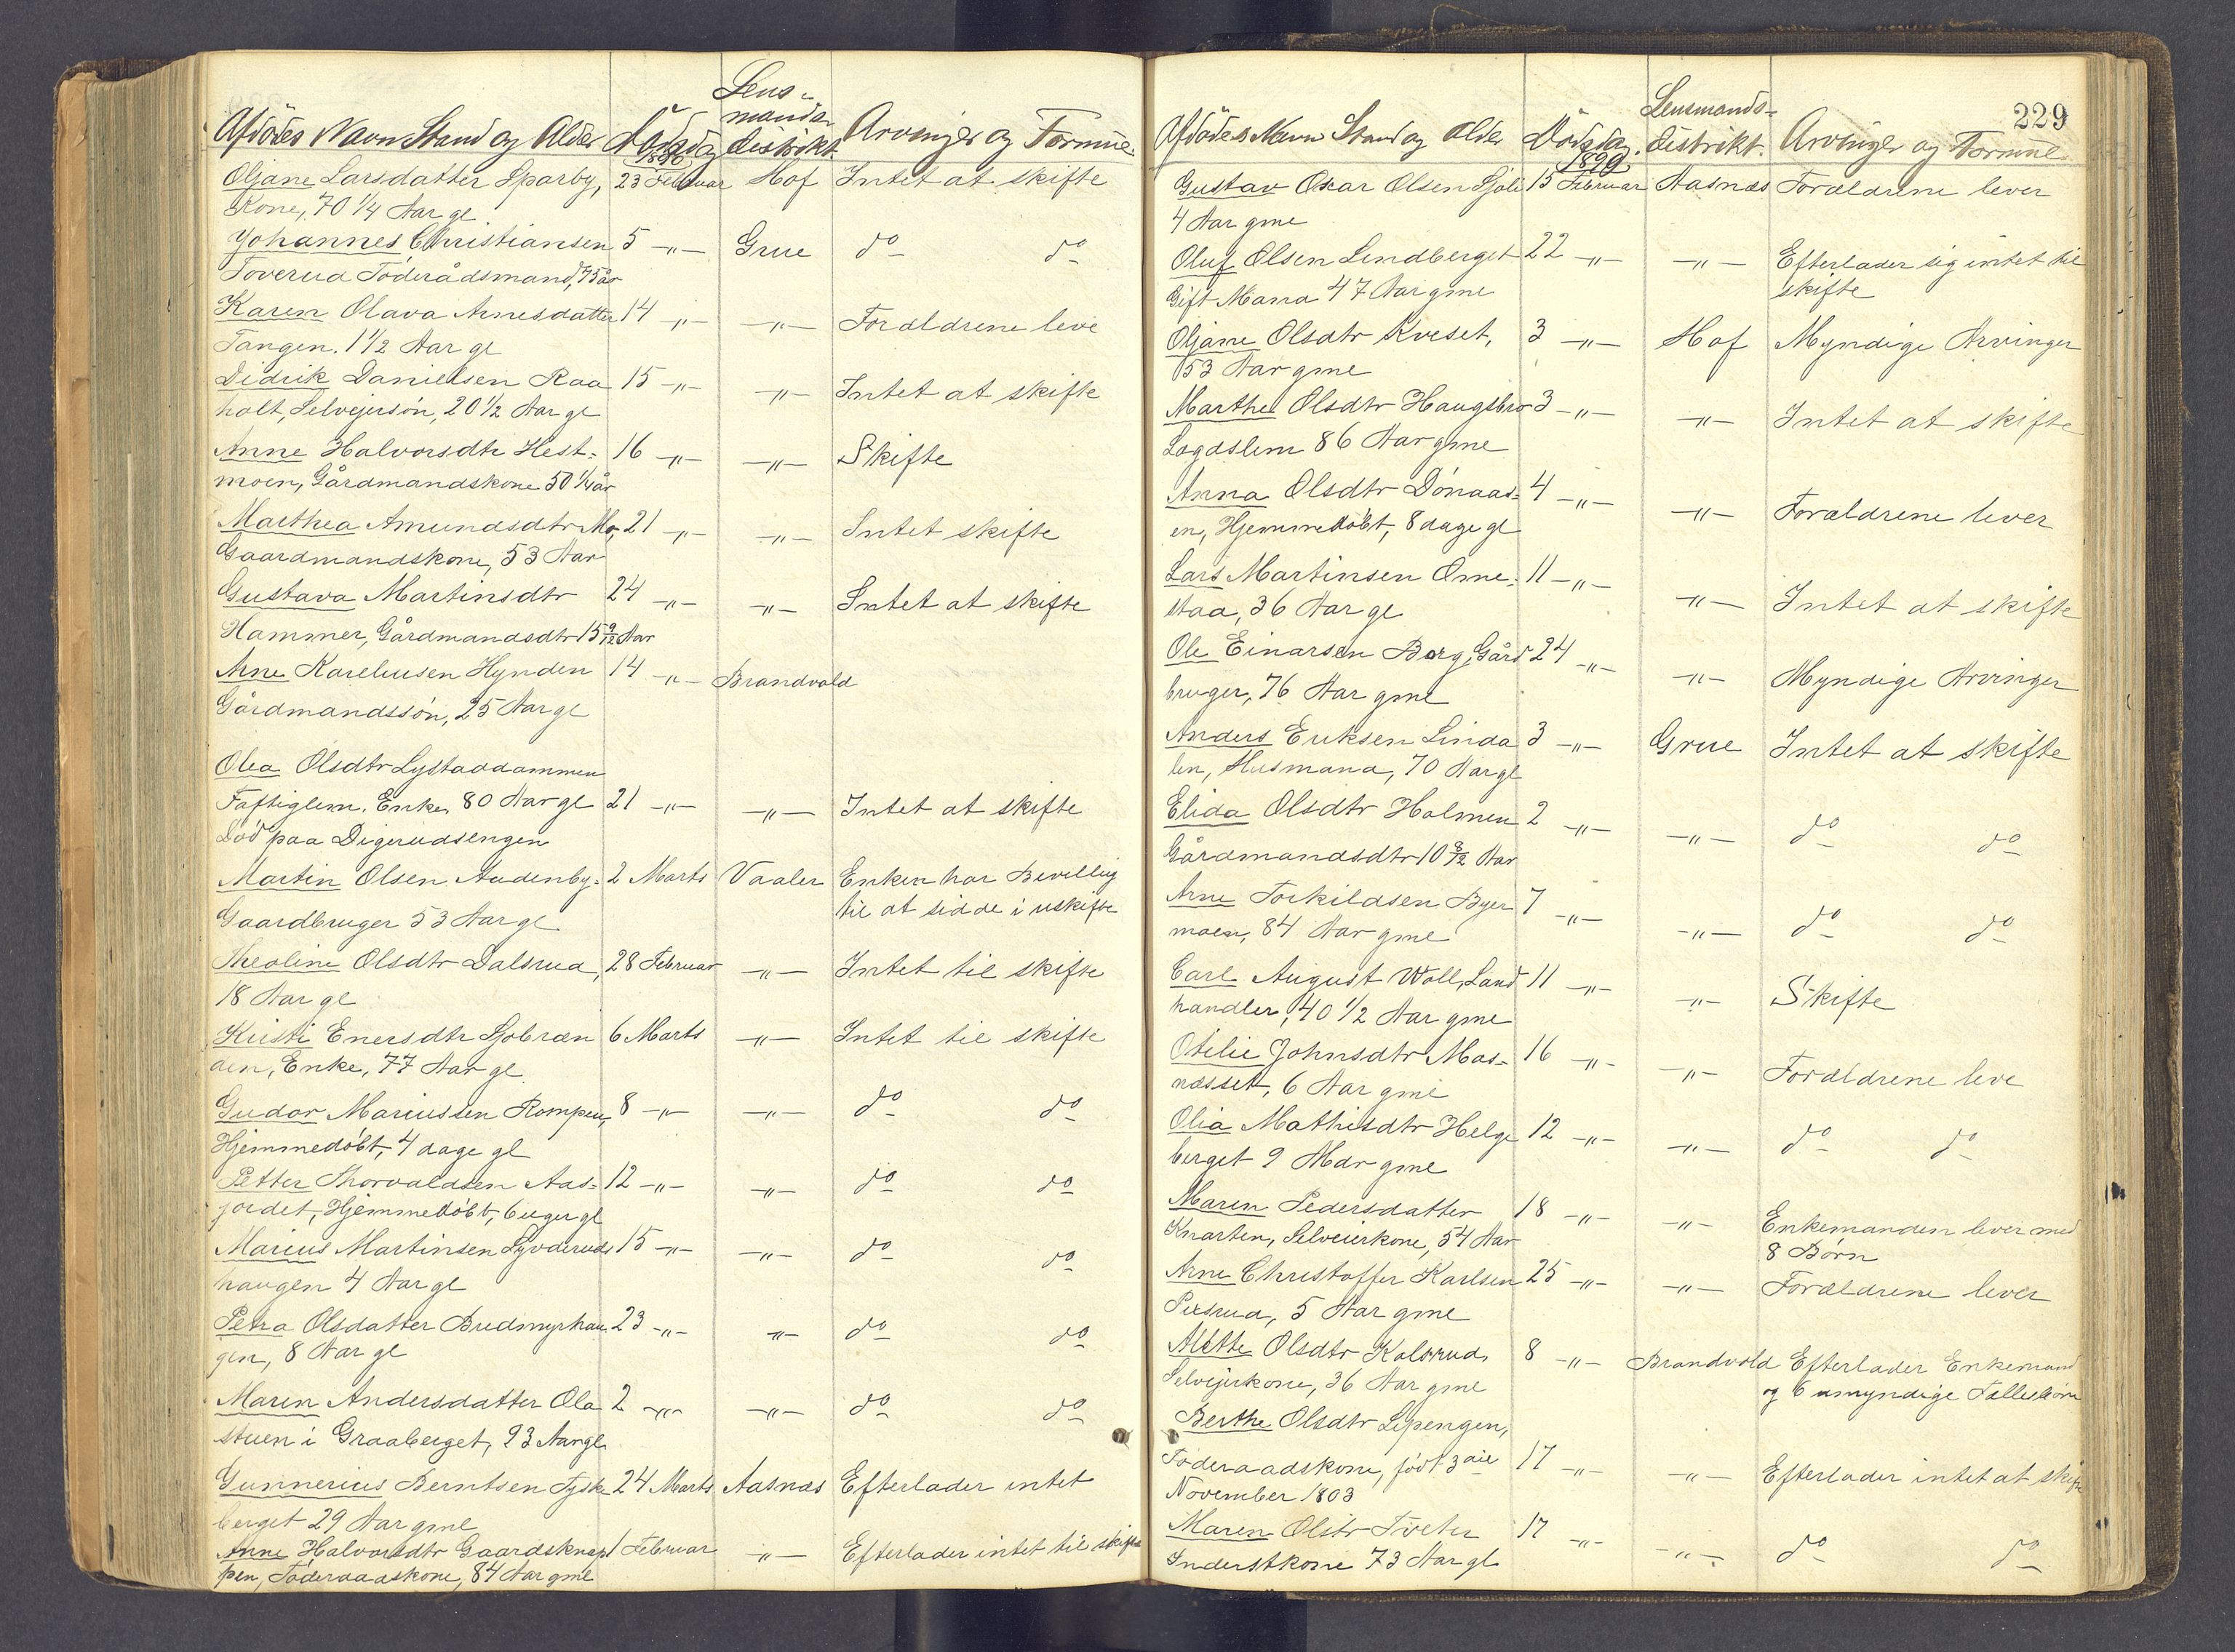 Lens-
mands
Afdödes Navn Stand og Alder Dödsdag distrikt. Arvinger og Formue.
1890
Oljane Larsdatter Sparby, 23 Februar Hof Intet at skifte
Kone, 70 1/4 Aar gl.
Johannes Christiansen 5 -"- Grue do do
Toverud Föderådsmand, 75 år
Karen Olava Arnesdatter 14 -"- -"- Forældrene leve
Tangen. 1 1/2 Aar gl
Didrik Danielsen Raa 15 -"- -"- Intet at skifte
holt, Selvejersön, 20 1/2 Aar gl
Anne Halvorsdtr Hest- 16 -"- -"- Skifte
moen, Gårdmandskone 50 1/4 år
Marthea Amundsdtr Mo, 21 -"- -"- Intet skifte
Gaardmandskone, 53 Aar
Gustava Martinsdtr 24 -"- -"- Intet at skifte
Hammer, Gårdmandsdtr 15 9/12 Aar
Arne Kareliusen Hynden 14 -"- Brandvold
Gårdmandssön, 25 Aar gl
Olea Olsdtr Lystaddammen
Fattiglem. Enke, 80 Aar gl 21 -"- -"- Intet at skifte
Död paa Digerudsengen
Martin Olsen Audenby- 2 Marts Vaaler Enken har Bevilling
Gaardbruger 53 Aar gl. til at sidde i uskifte
Theoline Olsdtr Dalsrud, 28 Februar -"- Intet til skifte
18 Aar gl
Kristi Enersdtr Sjobræn 6 Marts -"- Intet til skifte
den, Enke, 77 Aar gl.
Gudor Mariussen Rompen, 8 -"- -"- do do
Hjemmedöbt, 4 dage gl
Petter Thorvaldsen Aas- 12 -"- -"- do do
jordet, Hjemmedöbt, 6 uger gl
Marius Martinsen Syverud 15 -"- -"- do do
haugen 4 Aar gl
Petra Olsdatter Bredmyrhau 23 -"- -"- do do
gen, 8 Aar gl
Maren Andersdatter Ola 2 -"- -"- do do
stuen i Graaberget, 23 Aar gl.
Gunnerius Berntsen Tysk- 24 Marts Aasnæs Efterlader intet
berget 29 Aar gml
Anne Halvorsdtr Gaardsknap 1 Februar -"- Efterlader intet til skifte
pen, Föderaadskone, 84 Aar gml
229
Lensmands-
Afdödes Navn Stand og Alder Dödsdag. distrikt. Arvinger og Formue
1890
Gustav Oscar Olsen Sjöli 15 Februar Aasnæs Forældrene lever
4 Aar gml
Oluf Olsen Lindberget 22 -"- -"- Efterlader sig intet til
Gift Mand 47 Aar gml skifte
Oljane Olsdtr Kveset, 3 -"- Hof Myndige Arvinger
53 Aar gml
Marthe Olsdtr Haugsbro 3 -"- -"- Intet at skifte
Lægdslem 86 Aar gml
Anna Olsdtr Dönaas- 4 -"- -"- Forældrene lever
en, Hjemmedöbt, 8 dage gl
Lars Martinsen Orne- 11 -"- -"- Intet at skifte
staa, 36 Aar gl
Ole Einarsen Berg, Gård 24 -"- -"- Myndige Arvinger
bruger, 76 Aar gml
Anders Eriksen Linda 3 -"- Grue Intet at skifte
len, Husmand, 70 Aar gl
Elida Olsdtr Holmen 2 -"- -"- do do
Gårdmandsdtr 10 8/12 Aar
Arne Torkildsen Byer 7 -"- -"- do do
moen, 84 Aar gml
Carl August Woll, Land 11 -"- -"- Skifte
handler, 40 1/2 Aar gml
Otilie Johnsdtr Mas- 16 -"- -"- Forældrene leve
næsset, 6 Aar gml
Olia Mathisdtr Helge 12 -"- -"- do do
berget 9 Mdr gml
Maren Pedersdatter 18 -"- -"- Enkemanden lever med
Knarten, Selveierkone, 54 Aar 8 Børn
Arne Christoffer Karlsen 25 -"- -"- Forældrene lever
Pirsrud, 5 Aar gml
Mette Olsdtr Kalsrud, 8 -"- Brandvold Efterlader Enkemand
Selvejerkone, 36 Aar gml og 6 umyndige Fællesbørn
Berthe Olsdtr Lepengen,
Föderaadskone, födt 3die 17 -"- -"- Efterlader intet at skifte
November 1803
Maren Olstr Tveter 17 -"- -"- do do
Inderstkone 73 Aar gl.